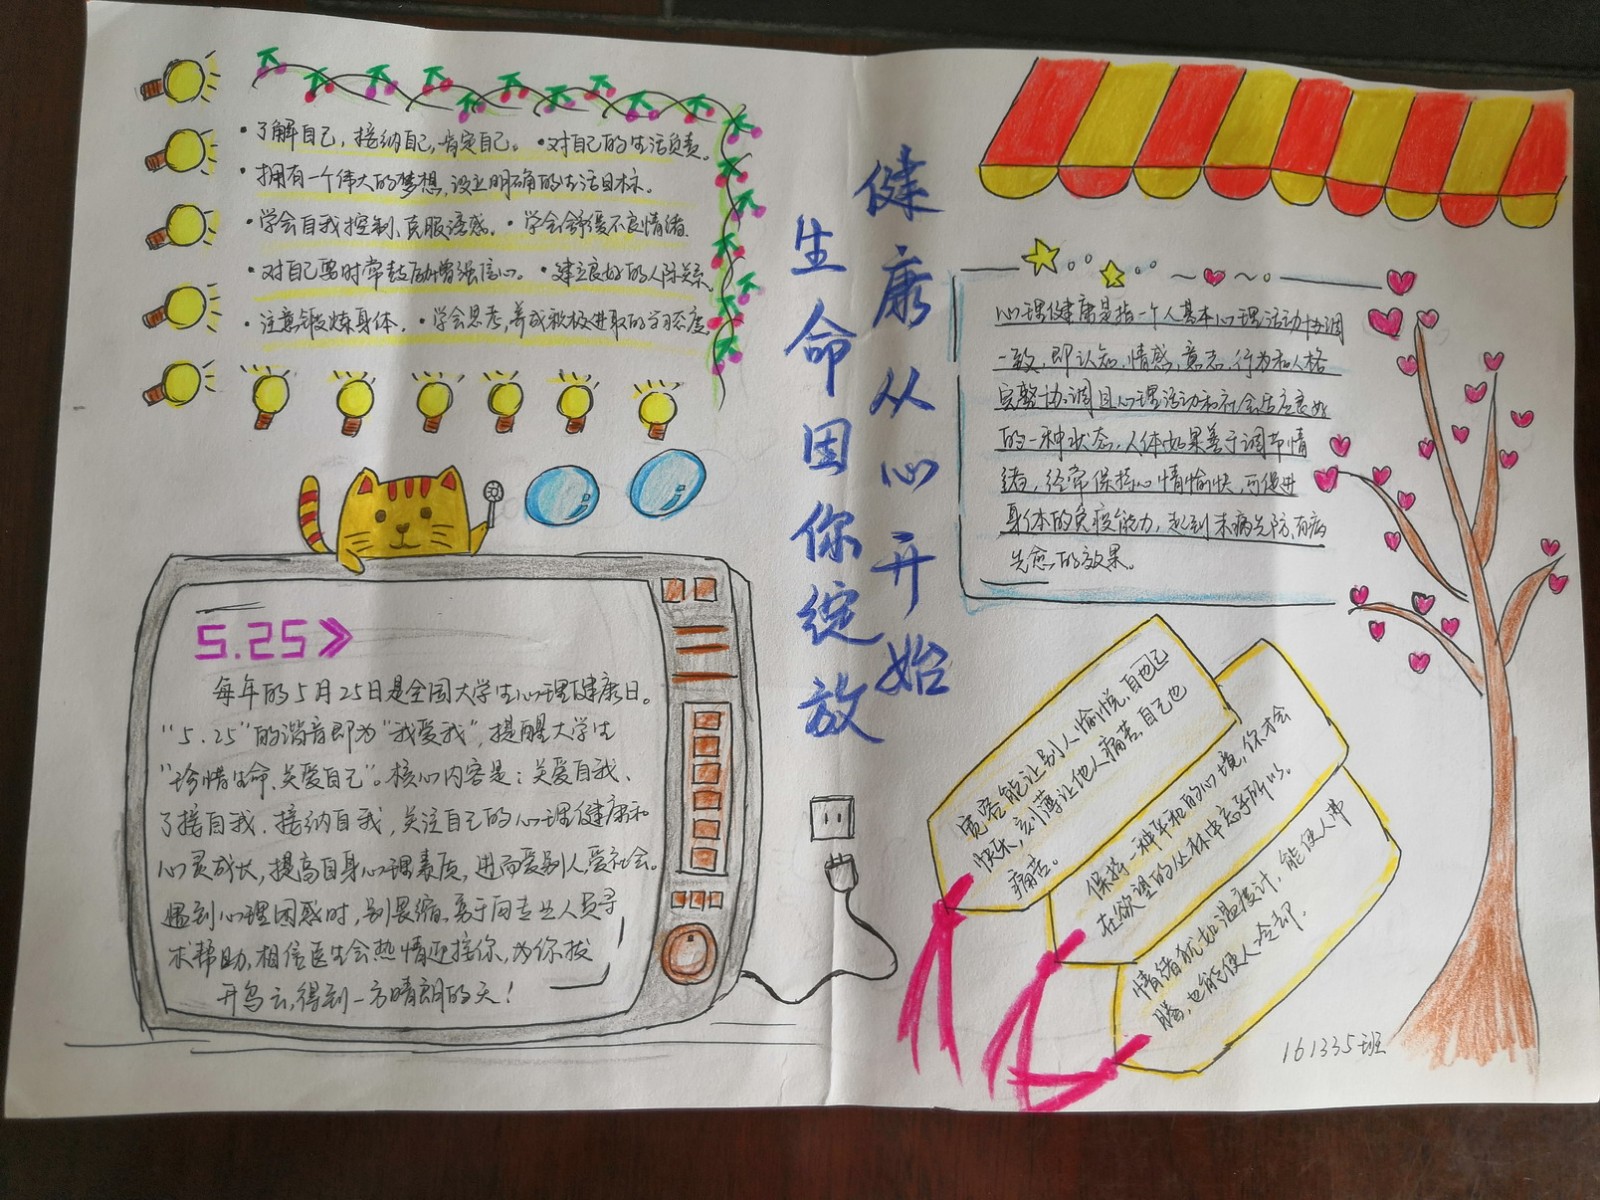 •了解自己,接纳自己,肯定自己。•对自己的生活负责。
•拥有一个伟大的梦想,设立明确的生活目标。
•学会自我控制、克服诱惑。•学会舒缓不良情绪.
•对自己要时常鼓励增强信心。•建立良好的人际关系.
•注意锻炼身体.•学会思考,养成积极进取的学习态度
健康从心开始
生命因你绽放
心理健康是指一个人基本心理活动协调
一致,即认知,情感,意志,行为和人格
完整协调且心理活动和社会适应良好
的一种状态,人体如果善于调节情
绪,经常保持心情愉快,可促进
身体的免疫能力,起到未病先防,有病
先愈的效果。
5.25
每年的5月25日是全国大学生心理健康日。
“5.25”的谐音即为“我爱我”,提醒大学生
“珍惜生命、关爱自己”。核心内容是:关爱自我、
了接自我、接纳自我,关注自己的心理健康和
心灵成长,提高自身心理素质,进而爱别人,爱社会。
遇到心理困惑时,别畏缩,勇于向专业人员寻
求帮助,相信医生会热情迎接你,为你拨
开乌云,得到一方晴朗的天!
宽容能让别人愉悦,自也己
快乐,刻薄让他人痛苦,自己也
痛苦。
保持一种平和的心境,你才会
在欲望的丛林中忘乎所以。
情绪犹如温度计,能使人沸
腾,也能使人冷却.
161335班